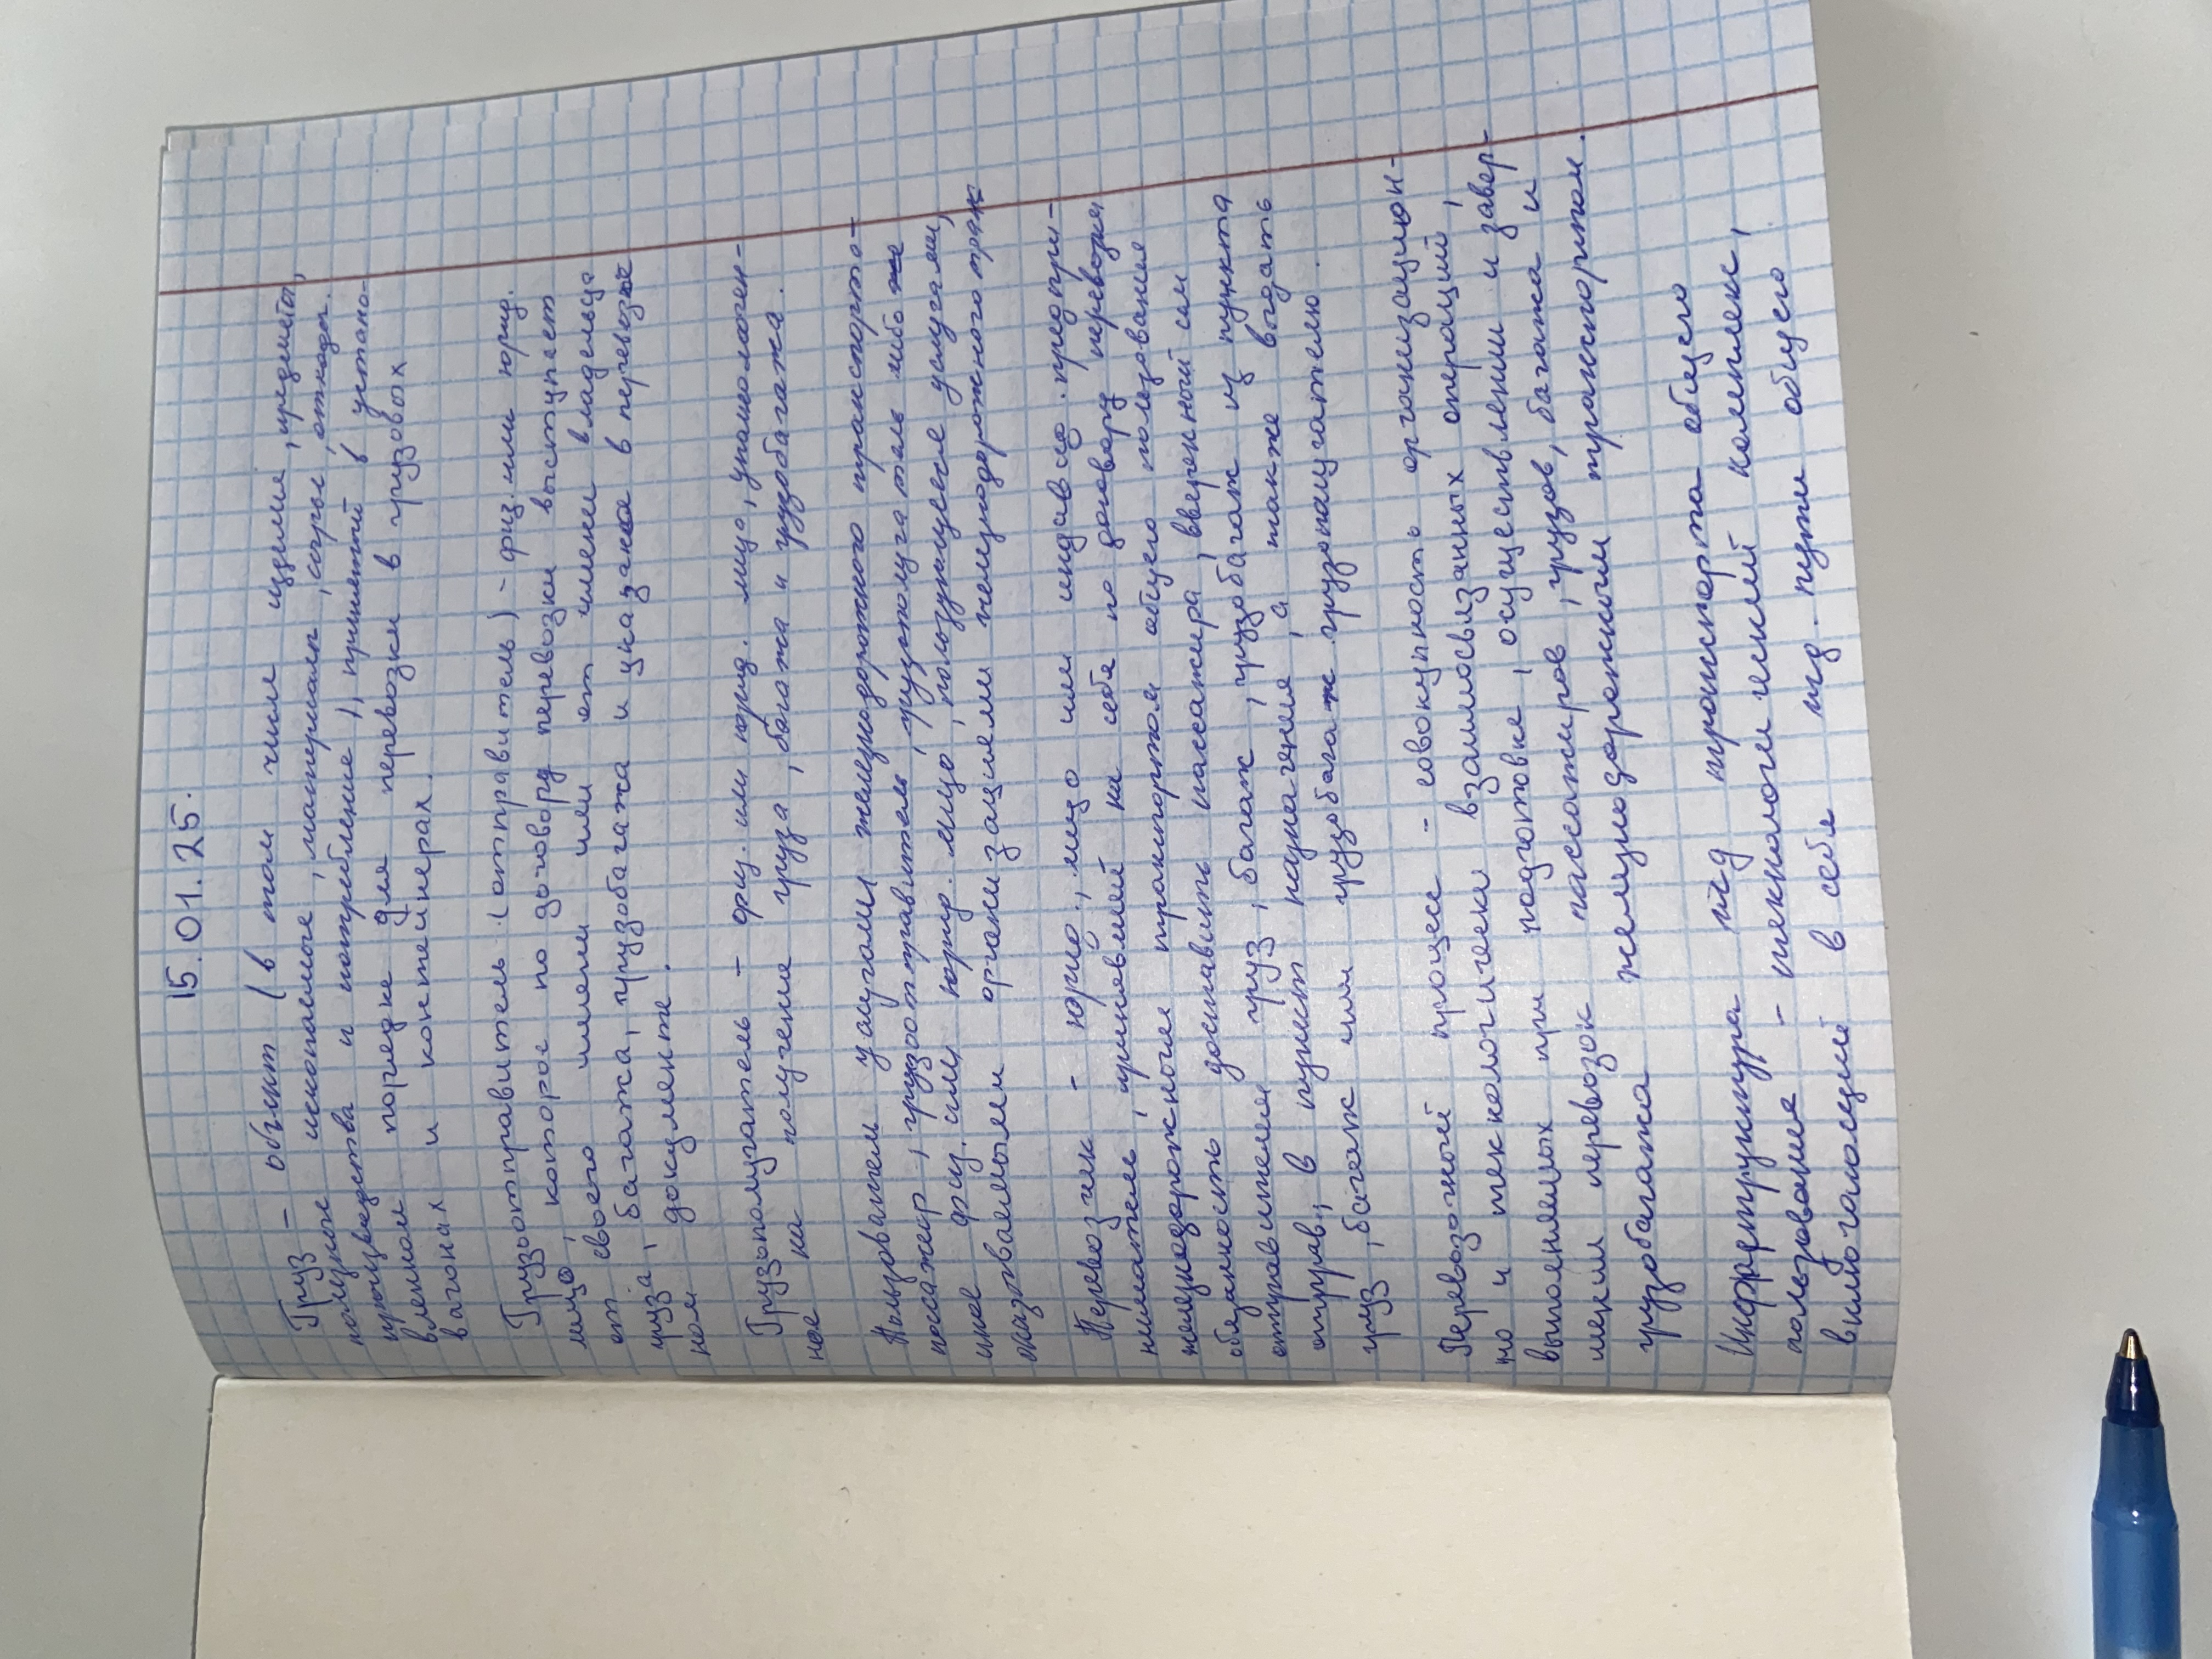 15.01.25.
Груз – объект (в том числе изделия, предметы,
полезные ископаемые, материалы, сырье, отходы
производства и потребление), принятый в устано-
вленном порядке для перевозки в грузовых
вагонах и контейнерах.
Грузоотправитель (отправитель) – физ. или юрид.
лицо, которое по договору перевозки выступает
от своего имени или от имени владельца
груза, багажа, грузобагажа и указано в перевозоч
ном документе.
Грузополучатель – физ. или юрид. лицо, уполномочен-
ное на получение груза, багажа и грузобагажа.
Пользователем услугами железнодорожного транспорта –
пассажир, грузоотправитель, грузополучатель либо
иное физ. или юрид. лицо, пользующееся услугами,
оказываемыми организациями железнодорожного тран
Перевозчик – юрид. лицо или индив-ю. предпри-
ниматель, принявший на себя по договору перевозки
железнодорожным транспортом общего пользования
обязанность доставить пассажира, вверенный им
отправителем груз, багаж, грузобагаж из пункта
отправ., в пункт назначения, а также выдать
груз, багаж или грузобагаж грузополучателю.
Перевозочный процесс – совокупность организацион-
но и технологически взаимосвязанных операций,
выполняемых при подготовке, осуществлении и завер-
шении перевозок пассажиров, грузов, багажа и
грузобагажа железнодорожным транспортом.
Инфраструктура жд транспорта общего
пользования – технологический комплекс,
включающий в себя жд. пути общего